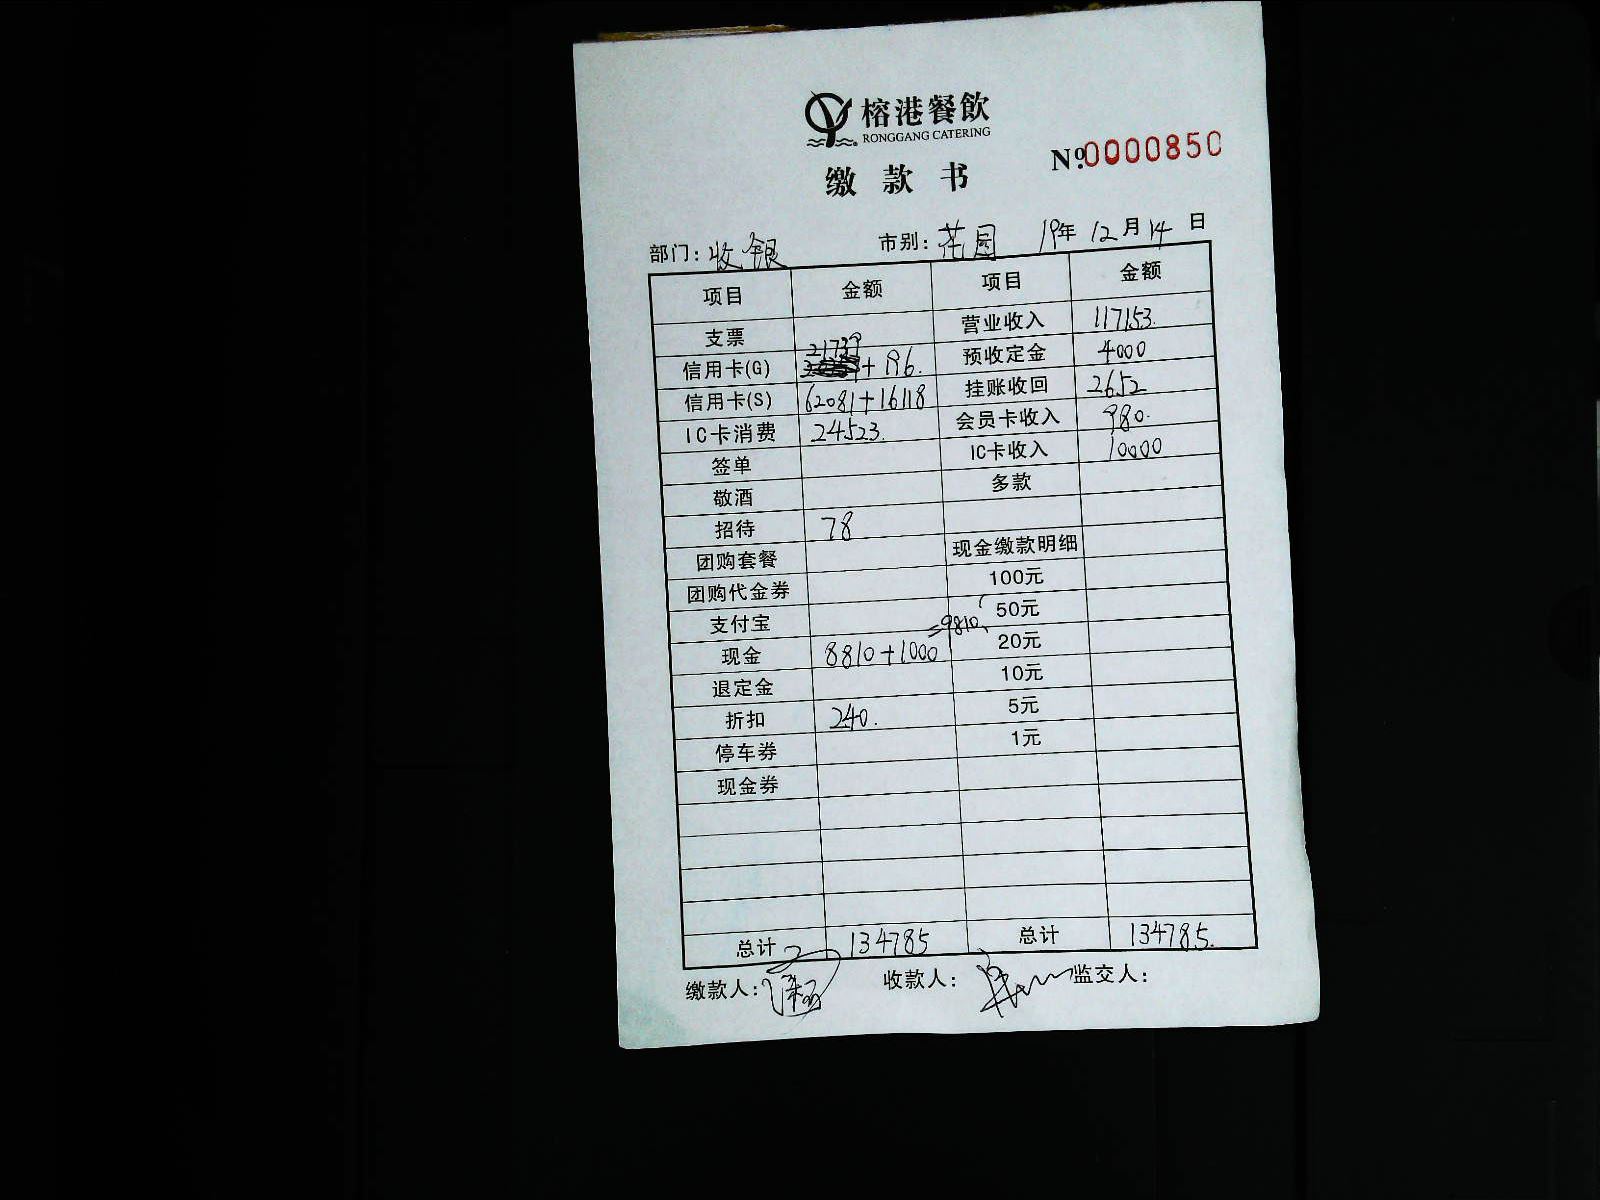 榕港餐飲
RONGGANG CATERING
№0000850
缴款书
部门：收银 市别：花园 19年 12月 14日
项目 金额 项目 金额
支票 营业收入 117153.
信用卡(G) 21739+196. 预收定金 4000
信用卡(S) 62081+16118 挂账收回 2652
IC卡消费 24523. 会员卡收入 980.
签单 IC卡收入 10000
敬酒 多款
招待 78
团购套餐 现金缴款明细
团购代金券 100元
支付宝 50元
现金 8810+1000=9810. 20元
退定金 10元
折扣 240. 5元
停车券 1元
现金券
总计 134785 总计 134785.
缴款人： 收款人： 监交人：